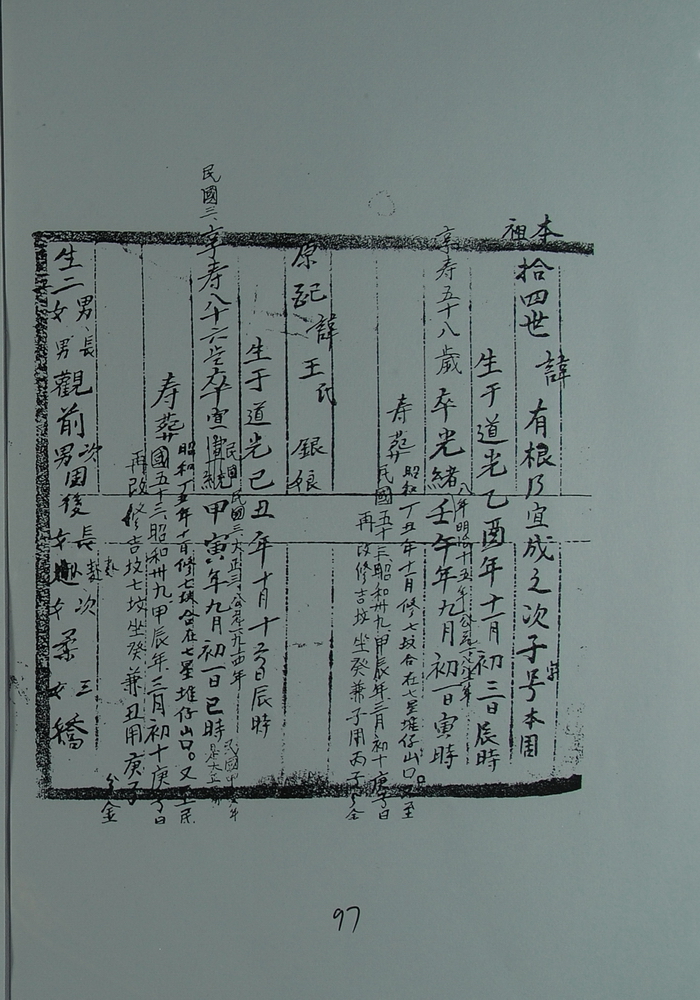 本祖
拾四世 諱 有根乃宜成之次子号本固
生于道光乙酉年十一月初三日辰時
享寿五十八歲 卒光緒壬午年九月初一日寅時
八年明治十五年公元一八八二年
寿葬 昭和丁丑年十一月修七坟合在七星堆仔山口又至
民國五十三昭和卅九甲辰年三月初十庚子日
再改修吉坟坐癸兼子用丙子分金
原記 諱 王氏 銀娘
生于道光己丑年十月十六日辰時
民國三大正三公元一九一四年
民國三享寿八十六岁卒宣統甲寅年九月初一日巳時
昭和丁丑年十一月修七坟合在七星堆仔山口。又至民
寿葬國五十三昭和卅九甲辰年三月初十庚子日
再改修吉坟七坟坐癸兼丑用庚子
分金
生二男長男觀前次男固後
女長女 次女柔三女橋
97